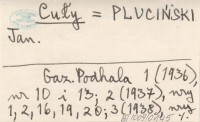 Cuły = PLUCIŃSKI
Jan.
Gaz. Podhala 1 (1936),
nr 10 i 13; 2 (1937), nry
1, 2, 16, 19, 20; 3 (1938), nry